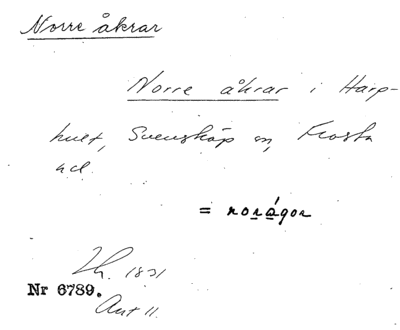 Norre åkrar
Norre åkrar i Harp-
hult, Svensköp sn, Frosta
hd.
= norågor
Lh. 1831
Nr 6789.
Ant 11.